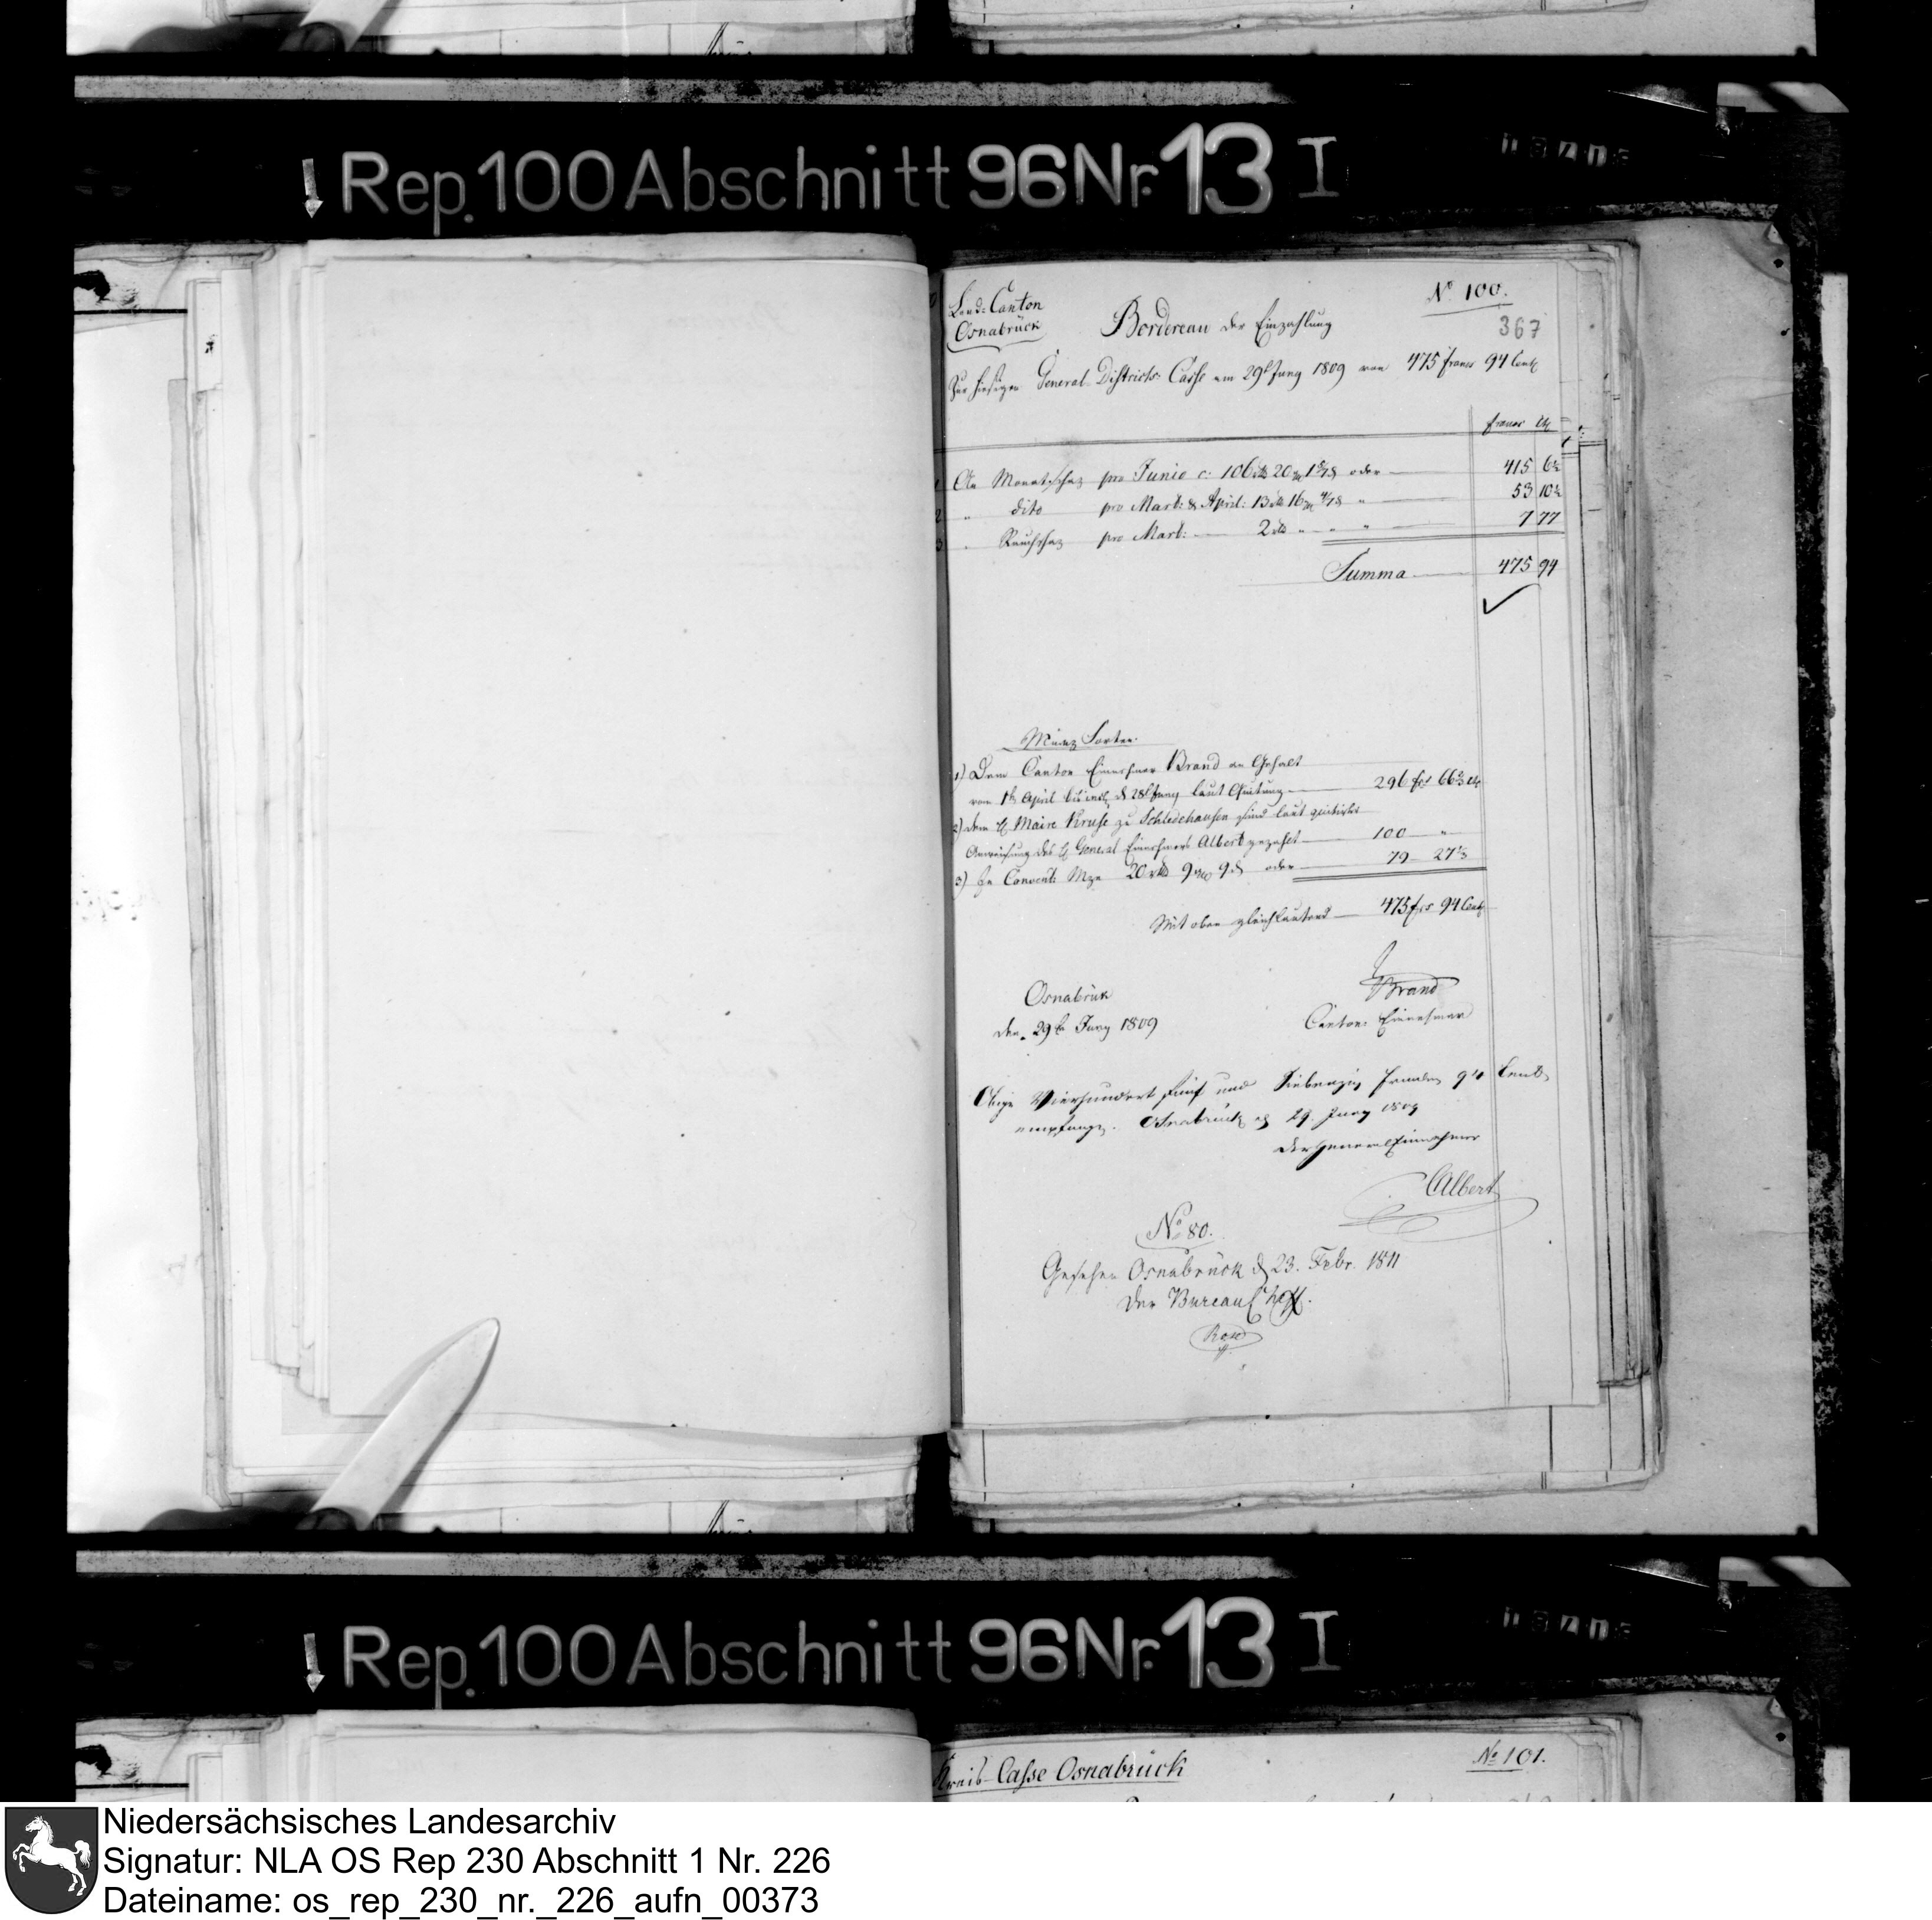 Rep. 100 Abschnitt 96 Nr. 13 I
Land-Canton
Osnabrück
No 100.
367
Bordereau der Einzahlung
Zur hiesigen General-Districts-Casse am 29t Juny 1809 von 475 francs 94 Cent.
francs
1 An Monatschaz pro Junio c: 106 rtl 20 1 5/7 oder 415 6 1/2
2 " dito pro Mart: & April: 13 rtl 16 4/7 " 53 10 1/2
3 " Rauchschaz pro Mart: 2 rtl " " " 7 77
Summa 475 94
Münz Sorten
1) Dem Canton Einnehmer Brand an Gehalt
vom 1t April bis incl. d 28t Juny laut Quitung 296 frs 66 2/3
2) dem H. Maire Kruse zu Schledehausen sind laut quitirter
Anweisung des H. General Einnehmers Albert gezahlt 100 "
3) In Convent: Mze 20 rtl 9 9 oder 79 27 1/3
Mit oben gleichlautend 475 frs 94 Cent
Osnabrük
den 29ten Juny 1809
Brand
Canton Einnehmer
Obige Vierhundert fünf und Siebenzig Franken 94 Cent.
empfangen. Osnabrück d 29. Juny 1809
Der General Einnehmer
Albert
No 80.
Gesehen Osnabrück d 23. Febr. 1811
Der Bureau Chef.
Rep. 100 Abschnitt 96 Nr. 13 I
Kreis-Casse Osnabrück
No 101.
Niedersächsisches Landesarchiv
Signatur: NLA OS Rep 230 Abschnitt 1 Nr. 226
Dateiname: os_rep_230_nr._226_aufn_00373